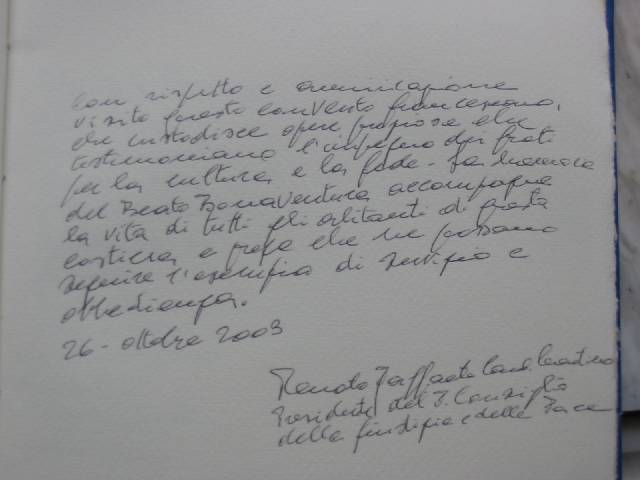 Con rispetto e ammirazione
visito questo convento francescano,
che custodisce opere preziose che
testimoniano l'impegno dei frati
per la cultura e la fede. La memoria
del Beato Bonaventura accompagna
la vita di tutti gli abitanti di questa
costiera e prego che ne possano
seguire l'esempio di servizio e
obbedienza.
26 - ottobre 2003
Renato Raffaele Card. Martino
Presidente del P. Consiglio
della Giustizia e della Pace